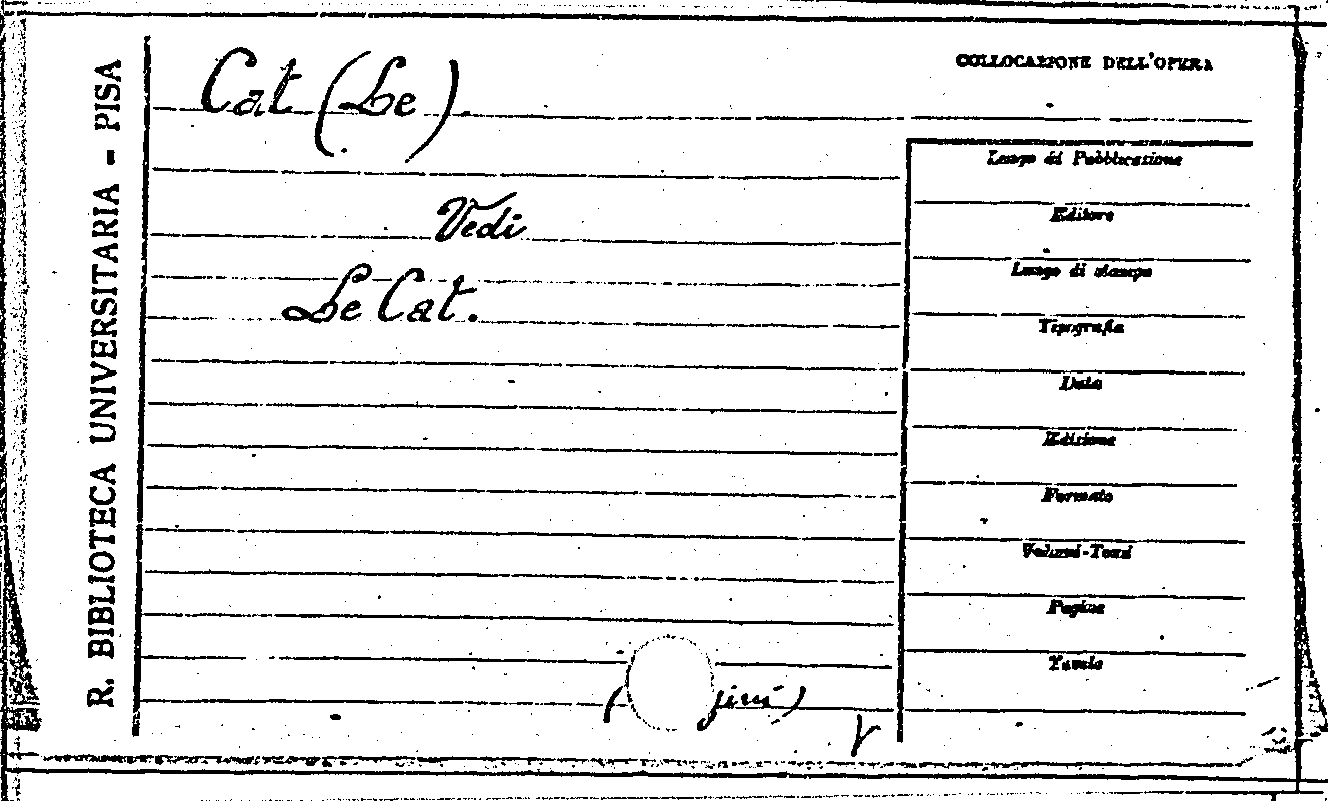 R. BIBLIOTECA UNIVERSITARIA - PISA
Cat (Le).
Vedi
Le Cat.
COLLOCAZIONE DELL'OPERA
Luogo di Pubblicazione
Editore
Luogo di stampa
Tipografia
Data
Edizione
Formato
Volumi-Tomi
Pagine
Tavole